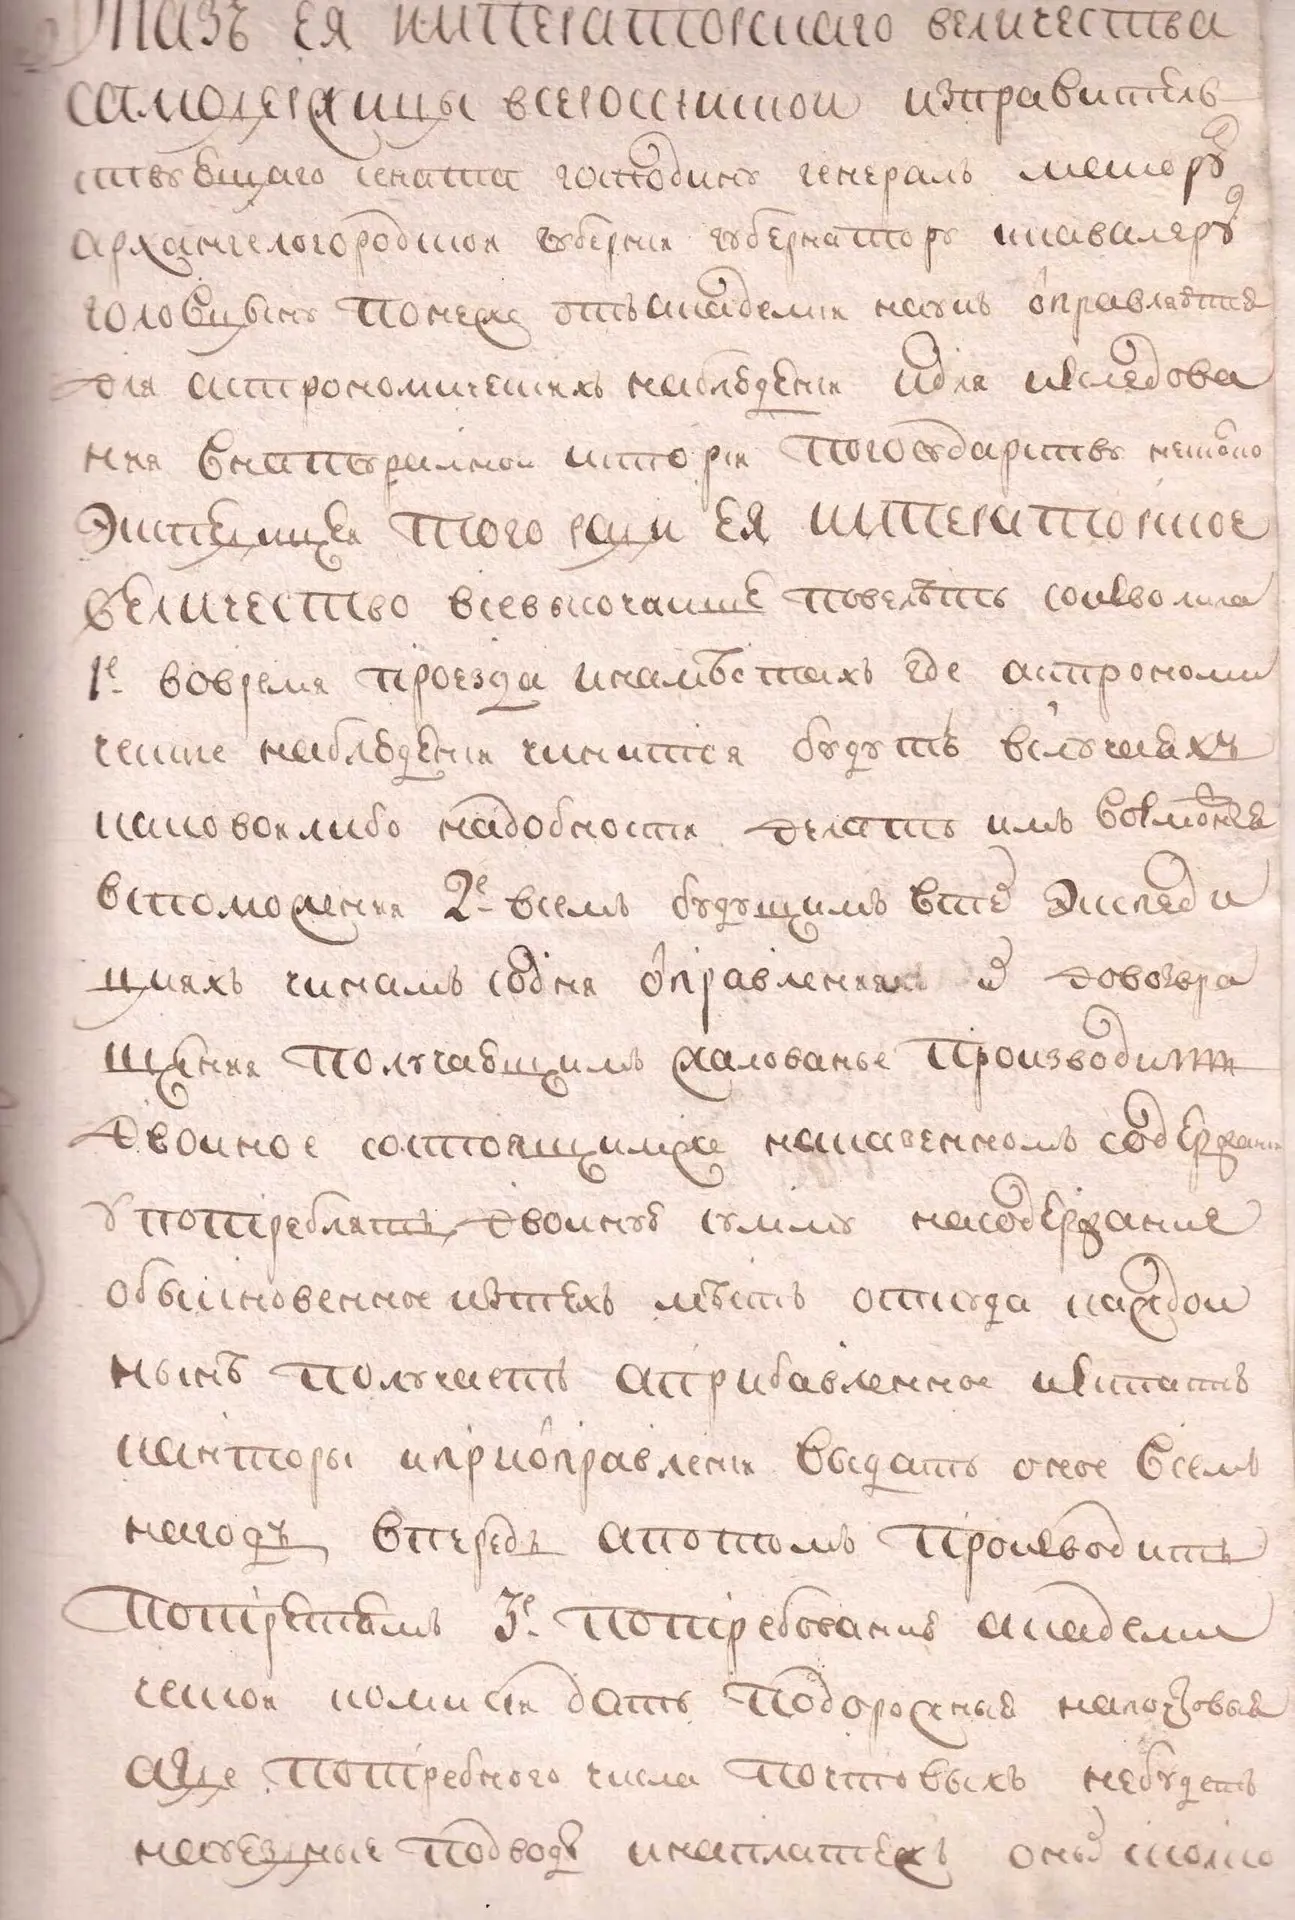 Указъ ея императорскаго величества
самодержицы всероссиiской изправитель
ствующаго сената господину генералъ маеору
архангелогородской губернии губернатору икавалеру
головцыну понеже отъ академии наукъ оправляются
для астрономическихъ наблюдении идля изследова
ния внатуралной истории погосударству несколко
экспедицеи того ради ея императорское
величество всевысочаише повелѣть соизволила
1е вовремя проезда инамѣстахъ где астрономи
ческие наблюдении чинится будутъ вслучаяхъ
каковоилибо надобности делать имъ возможные
вспоможении 2е всемъ будущимъ втех экспеди
цияхъ чинамъ содня оправления их довозвра
щения получающимъ жалованье производить
двоиное состоящимже наказенномъ содержании
употреблять двоиную сумму насодержание
обыкновенное изтехъ мѣстъ откуда каждои
нынѣ получаетъ априбавленное изштатъ
канторы иприоправлении выдать оное всемъ
нагодъ впередъ апотомъ производить
потретямъ 3е потребованию академи
ческои комисии дать подорожные напочтовые
аще потребного числа почтовыхъ небудетъ
науездные подводы инаплатежъ оных толко